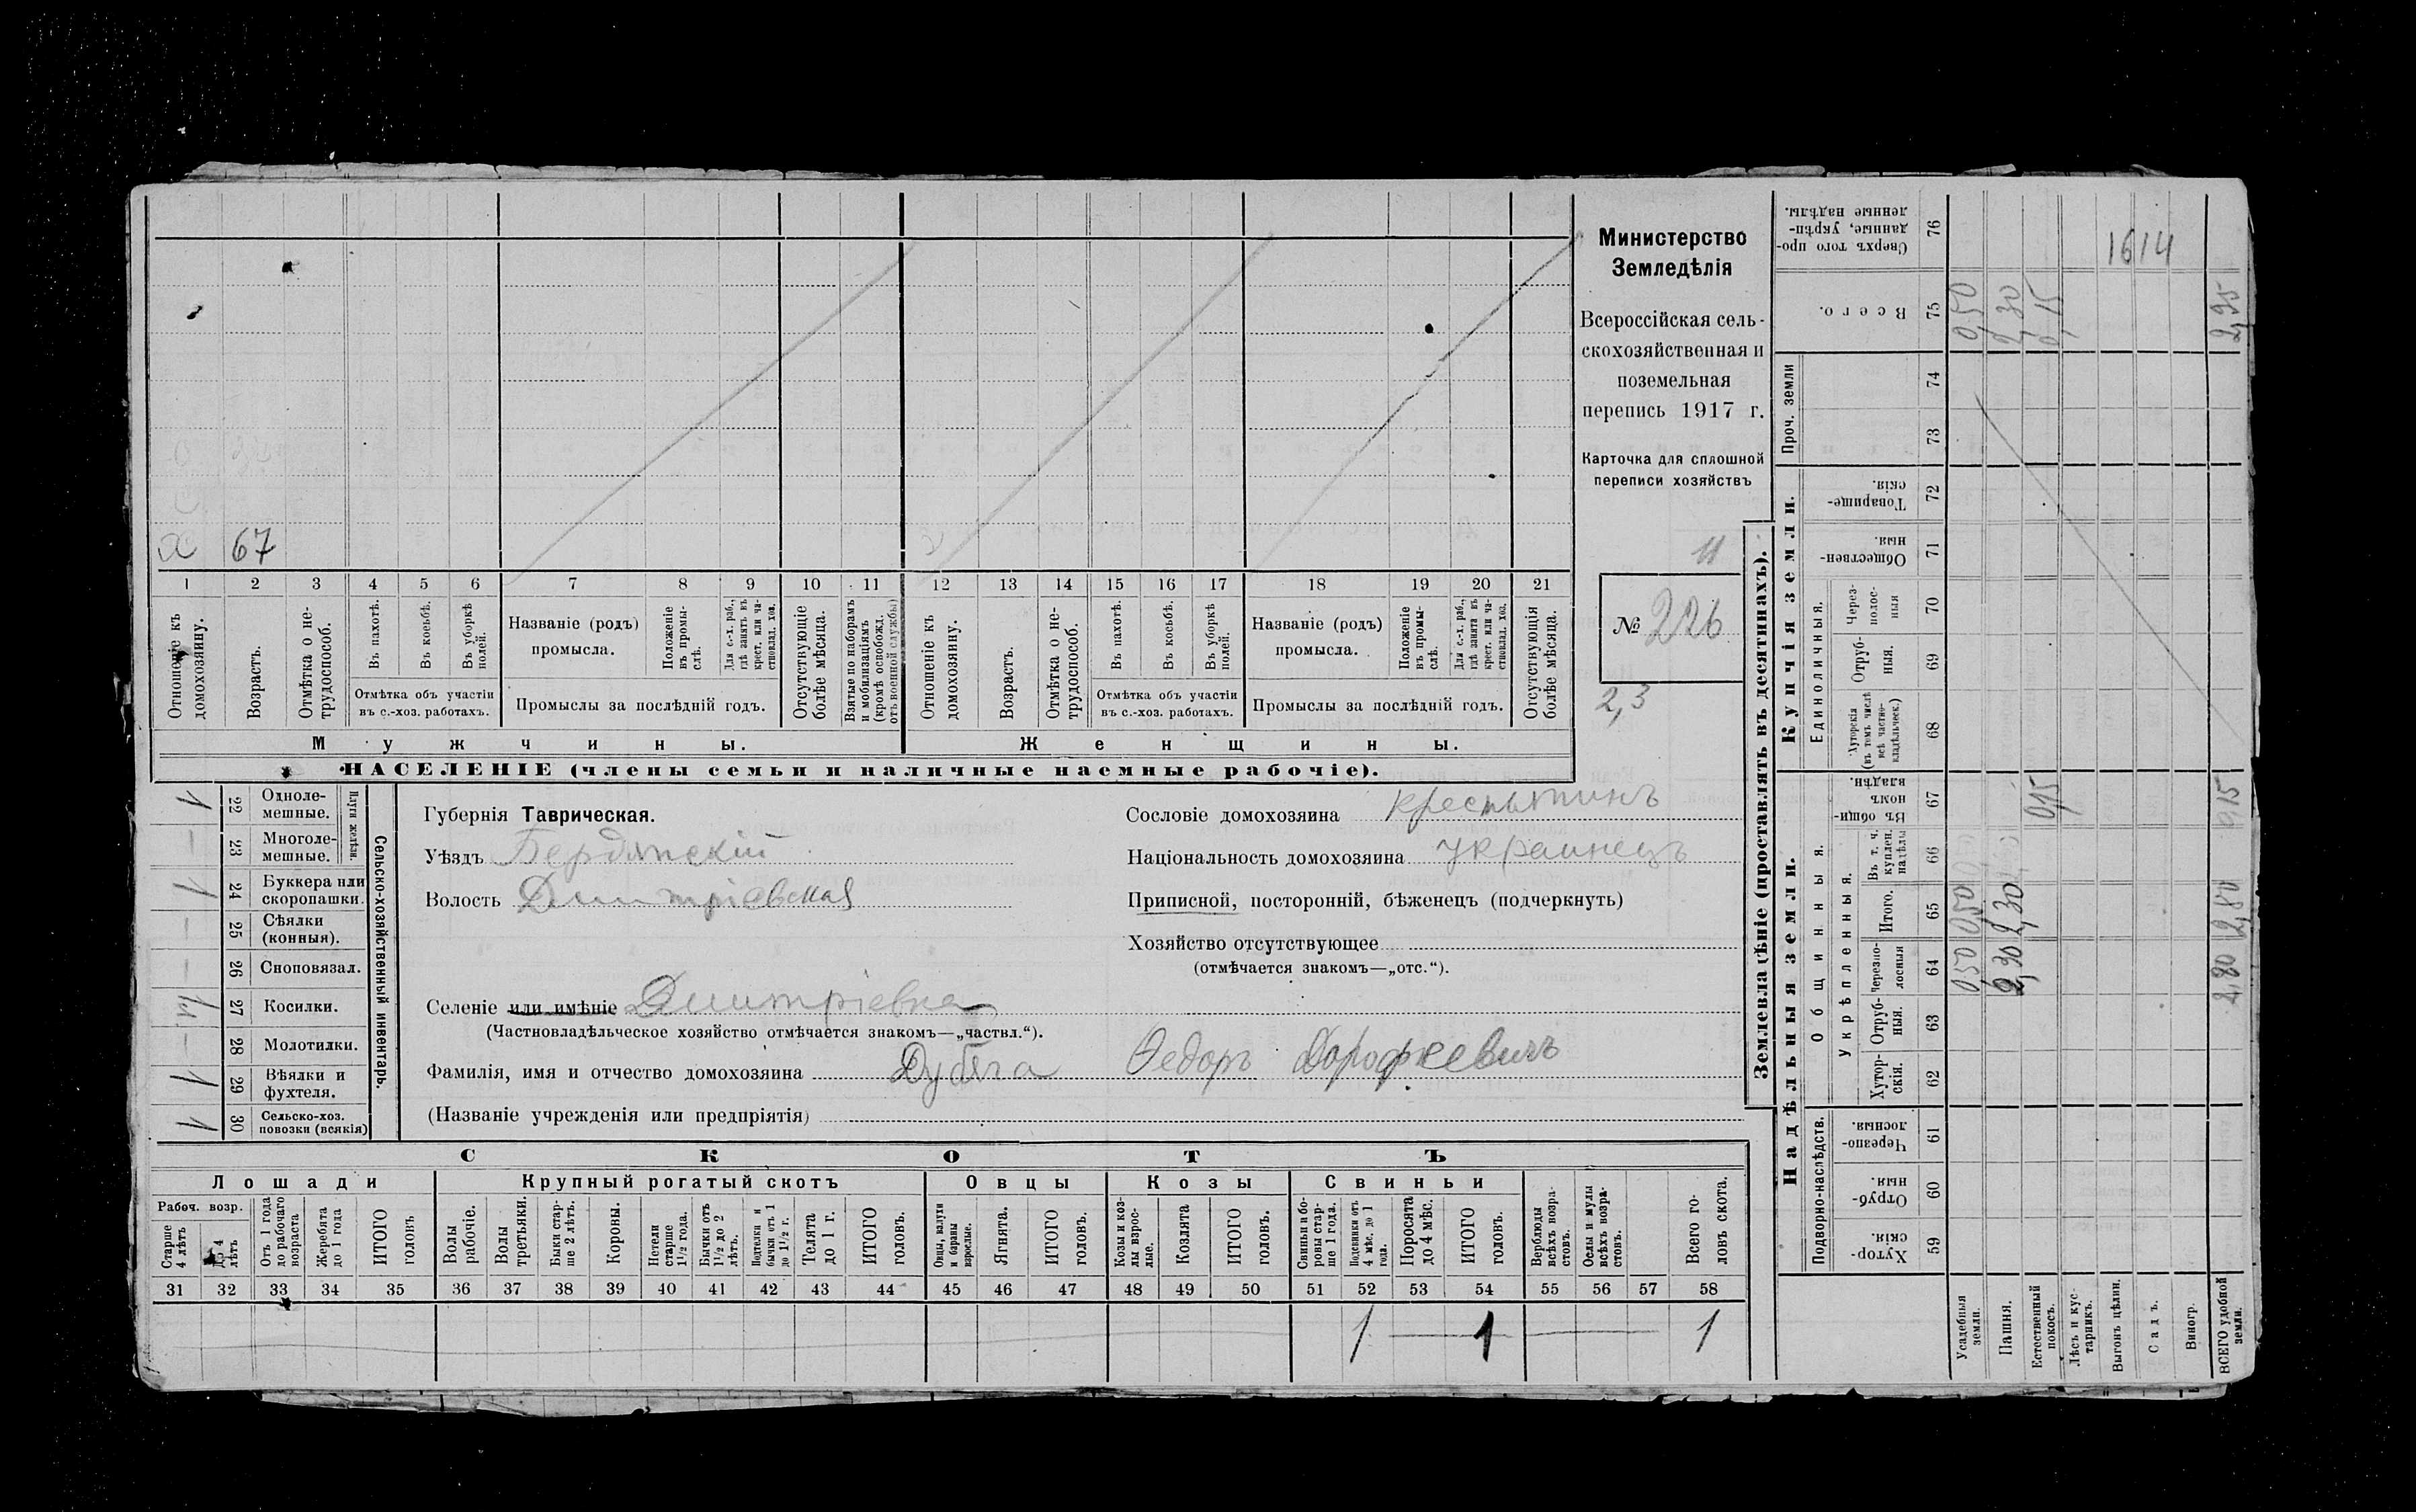 Министерство
Земледѣлія
Всероссійская сель-
скохозяйственная и
поземельная
перепись 1917 г.
Карточка для сплошной
переписи хозяйствъ
11
№ 226
2,3
х 67
1 2 3 4 5 6 7 8 9 10 11 12 13 14 15 16 17 18 19 20 21
Отношеніе къ домохозяину.
Возрастъ.
Отмѣтка о не-трудоспособ.
Въ пахотѣ.
Въ косьбѣ.
Въ уборкѣ полей.
Отмѣтка объ участіи
въ с.-хоз. работахъ.
Названіе (родъ)
промысла.
Положеніе въ промы-слѣ.
Для с.-х. раб., гдѣ занятъ въ крест. или ча-стновлад. хоз.
Промыслы за послѣдній годъ.
Отсутствующіе болѣе мѣсяца.
Взятые по наборамъ и мобилизаціямъ (кромѣ освобожд. отъ военной службы)
Отношеніе къ домохозяину.
Возрастъ.
Отмѣтка о не-трудоспособ.
Въ пахотѣ.
Въ косьбѣ.
Въ уборкѣ полей.
Отмѣтка объ участіи
въ с.-хоз. работахъ.
Названіе (родъ)
промысла.
Положеніе въ промы-слѣ.
Для с.-х. раб., гдѣ занята въ крест. или ча-стновлад. хоз.
Промыслы за послѣдній годъ.
Отсутствующія болѣе мѣсяца.
Мужчины.
Женщины.
НАСЕЛЕНІЕ (члены семьи и наличные наемные рабочіе).
Сельско-хозяйственный инвентарь.
Плуги желѣзн.
1 22 Одноле-мешные.
— 23 Многоле-мешные.
1 24 Буккера или скоропашки.
— 25 Сѣялки (конныя).
— 26 Сноповязал.
27 Косилки.
— 28 Молотилки.
1 29 Вѣялки и фухтеля.
1 30 Сельско-хоз. повозки (всякія)
Губернія Таврическая.
Уѣздъ Бердянскій
Волость Дмитріевская
Селеніе или имѣніе Дмитріевка
(Частновладѣльческое хозяйство отмѣчается знакомъ—„частвл.“).
Фамилія, имя и отчество домохозяина Дубяга Ѳедоръ Дорофеевичъ
(Названіе учрежденія или предпріятія)
Сословіе домохозяина крестьянинъ
Національность домохозяина украинецъ
Приписной, посторонній, бѣженецъ (подчеркнуть)
Хозяйство отсутствующее
(отмѣчается знакомъ—„отс.“).
СКОТЪ
Лошади
Крупный рогатый скотъ
Овцы
Козы
Свиньи
Рабоч. возр.
Старше 4 лѣтъ
До 4 лѣтъ
Отъ 1 года до рабочаго возраста
Жеребята до 1 года
ИТОГО головъ
Волы рабочіе.
Волы третьяки.
Быки стар-ше 2 лѣтъ.
Коровы.
Нетели старше 1½ года.
Бычки отъ 1½ до 2 лѣтъ.
Подтелки и бычки отъ 1 до 1½ г.
Телята до 1 г.
ИТОГО головъ.
Овцы, валухи и бараны взрослые.
Ягнята.
ИТОГО головъ.
Козы и коз-лы взрос-лые.
Козлята
ИТОГО головъ.
Свиньи и бо-ровы стар-ше 1 года.
Подсвинки отъ 4 мѣс. до 1 года.
Поросята до 4 мѣс.
ИТОГО головъ.
Верблюды всѣхъ возра-стовъ.
Ослы и мулы всѣхъ возра-стовъ.
Всего го-ловъ скота.
31 32 33 34 35 36 37 38 39 40 41 42 43 44 45 46 47 48 49 50 51 52 53 54 55 56 57 58
1 — 1 — 1
Землевладѣніе (проставлять въ десятинахъ).
Надѣльныя земли.
Купчія земли.
Проч. земли
Подворно-наслѣдств.
Общинныя.
Укрѣпленныя.
Единоличныя.
Хутор-скія. 59
Отруб-ныя. 60
Черезпо-лосныя. 61
Хутор-скія. 62
Отруб-ныя. 63
Черезпо-лосныя 64
Итого. 65
Въ т. ч. куплен. надѣлы 66
Въ общи-номъ владѣн. 67
Хуторскія (въ томъ числѣ всѣ частно-владѣльческ.) 68
Отруб-ныя. 69
Через-полос-ныя 70
Обществен-ныя. 71
Товарище-скія. 72
73
74
Всего. 75
Сверхъ того про-данные, укрѣп-ленные надѣлы. 76
1614
Усадебныя земли. 0,50 0,50 0,50
Пашня. 2,30 2,30 2,30
Естественный покосъ. 0,15 0,15
Лѣсъ и кус-тарникъ.
Выгонъ цѣлин.
Садъ.
Виногр.
ВСЕГО удобной земли. 2,80 2,80 0,15 2,95